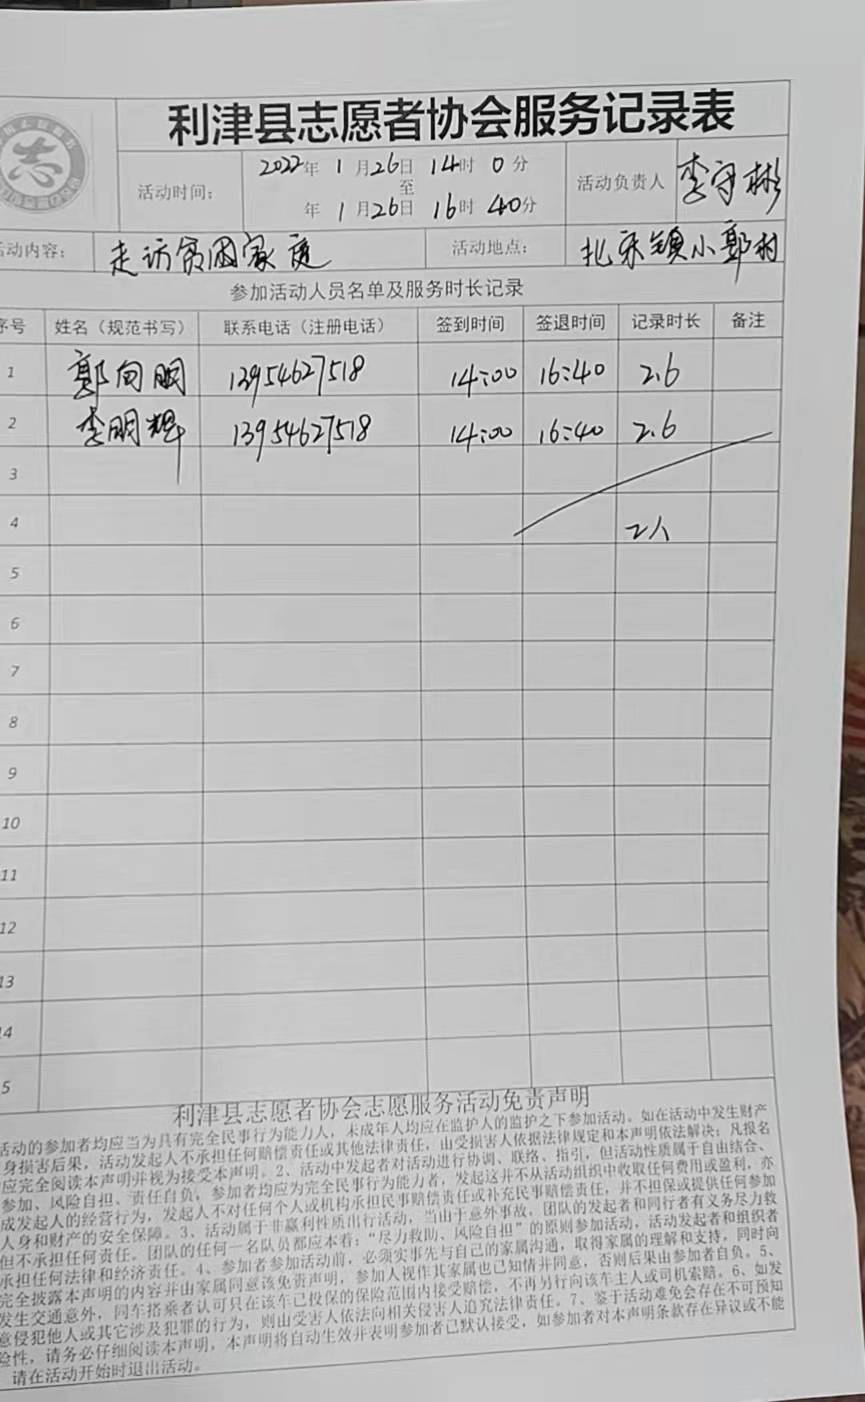 利津县志愿者协会服务记录表
志
活动时间：
2022年 1月26日 14时 0分
至
年 1月26日 16时 40分
活动负责人
李守彬
活动内容：
走访贫困家庭
活动地点：
北宋镇小郭村
参加活动人员名单及服务时长记录
序号 姓名（规范书写） 联系电话（注册电话） 签到时间 签退时间 记录时长 备注
1 郭向明 13954627518 14:00 16:40 2.6
2 李明辉 13954627518 14:00 16:40 2.6
3
4 2人
5
6
7
8
9
10
11
12
13
14
5
利津县志愿者协会志愿服务活动免责声明
活动的参加者均应当为具有完全民事行为能力人，未成年人均应在监护人的监护之下参加活动。如在活动中发生财产
身损害后果，活动发起人不承担任何赔偿责任或其他法律责任，由受损害人依据法律规定和本声明依法解决；凡报名
应完全阅读本声明并视为接受本声明。2、活动中发起者对活动进行协调、联络、指引，但活动性质属于自由结合、
参加、风险自担、责任自负，参加者均应为完全民事行为能力者，发起这并不从活动组织中收取任何费用或盈利，亦
成发起人的经营行为，发起人不对任何个人或机构承担民事赔偿责任或补充民事赔偿责任，并不担保或提供任何参加
人身和财产的安全保障。3、活动属于非赢利性质出行活动，当由于意外事故，团队的发起者和同行者有义务尽力救
但不承担任何责任。团队的任何一名队员都应本着：“尽力救助、风险自担”的原则参加活动，活动发起者和组织者
承担任何法律和经济责任。4、参加者参加活动前，必须实事先与自己的家属沟通，取得家属的理解和支持，同时向
完全披露本声明的内容并由家属同意该免责声明，参加人视作其家属也已知情并同意，否则后果由参加者自负。5、
发生交通意外，同车搭乘者认可只在该车已投保的保险范围内接受赔偿，不再另行向该车主人或司机索赔。6、如发
意侵犯他人或其它涉及犯罪的行为，则由受害人依法向相关侵害人追究法律责任。7、鉴于活动难免会存在不可预知
险性，请务必仔细阅读本声明，本声明将自动生效并表明参加者已默认接受，如参加者对本声明条款存在异议或不能
请在活动开始时退出活动。